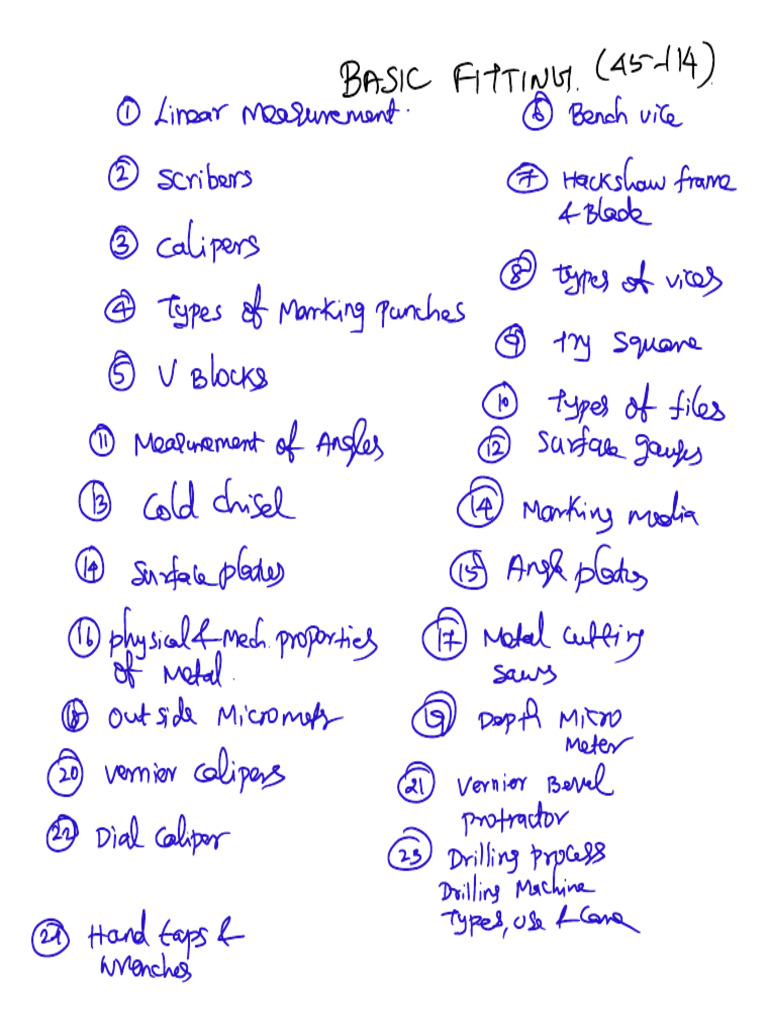 BASIC FITTING. (45-114)
① Linear Measurement.
⑥ Bench vice
② Scribers
⑦ Hackshaw frame
& Blade
③ Calipers
⑧ Types of vices
④ Types of Marking punches
⑨ Try Square
⑤ V Blocks
⑩ Types of files
⑪ Measurement of Angles
⑫ Surface gauges
⑬ Cold Chisel
⑭ Marking media
⑭ Surface plates
⑮ Angle plates
⑯ Physical & Mech. properties
of Metal.
⑰ Metal Cutting
Saws
⑱ Out side Micrometer
⑲ Depth Micro
Meter
⑳ Vernier Calipers
㉑ Vernier Bevel
protractor
㉒ Dial Caliper
㉓ Drilling process
Drilling Machine
Types, Use & Care
㉔ Hand taps &
Wrenches